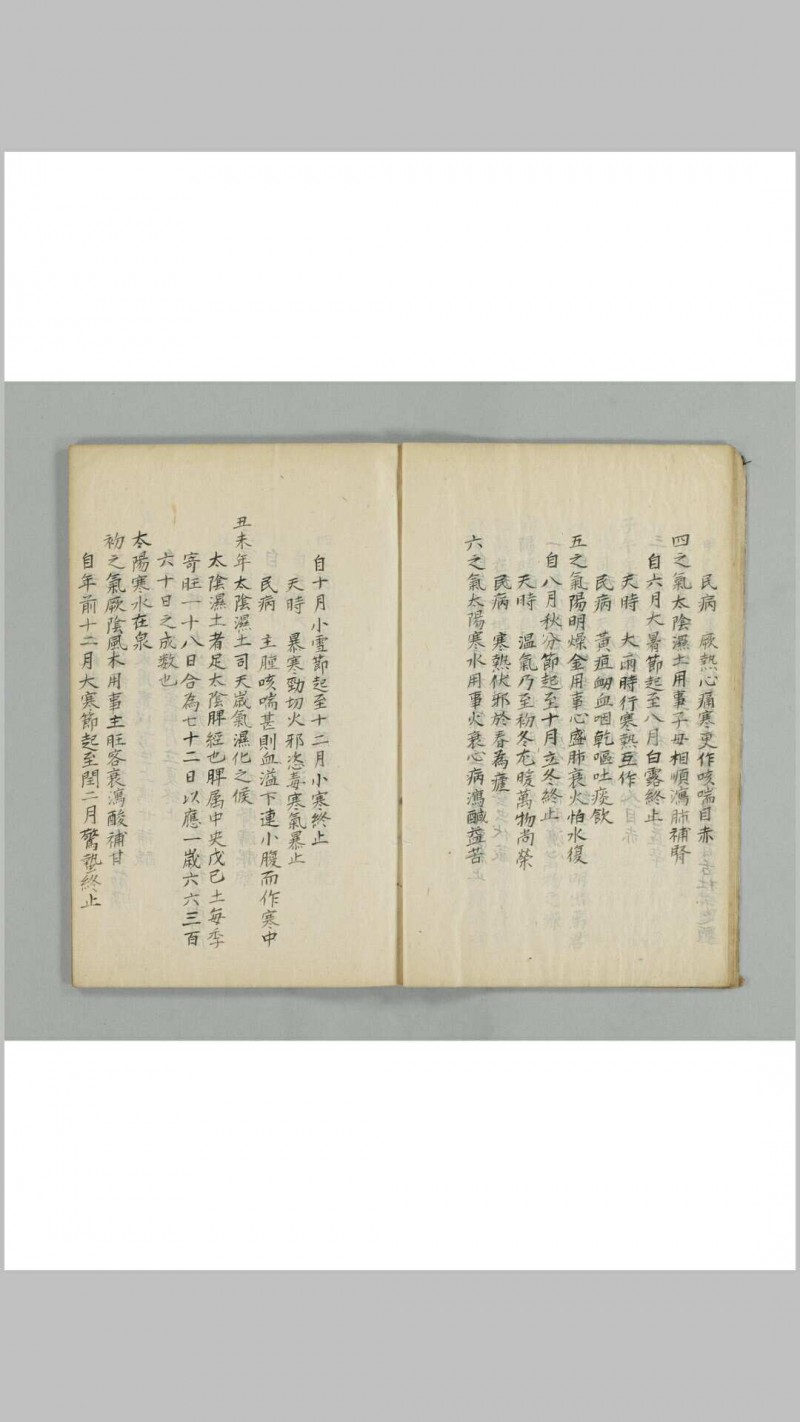 民病　厥熱心痛寒更作咳喘目赤
四之氣太陰濕土用事子母相順瀉肺補腎
自六月大暑節起至八月白露終止
天時　大雨時行寒熱互作
民病　黃疸衂血咽乾嘔吐痰飲
五之氣陽明燥金用事心盛肺衰火怕水復
自八月秋分節起至十月立冬終止
天時　溫氣乃至初冬尤暖萬物尚榮
民病　寒熱伏邪於春為瘧
六之氣太陽寒水用事火衰心病瀉鹹益苦
自十月小雪節起至十二月小寒終止
天時　暴寒勁切火邪恣毒寒氣暴止
民病　主腫咳喘甚則血溢下連小腹而作寒中
丑未年太陰濕土司天歲氣濕化之候
太陰濕土者足太陰脾經也脾属中央戊己土每季
寄旺一十八日合為七十二日以應一歲六六三百
六十日之成數也
太陽寒水在泉
初之氣厥陰風木用事主旺客衰瀉酸補甘
自年前十二月大寒節起至閏二月驚蟄終止